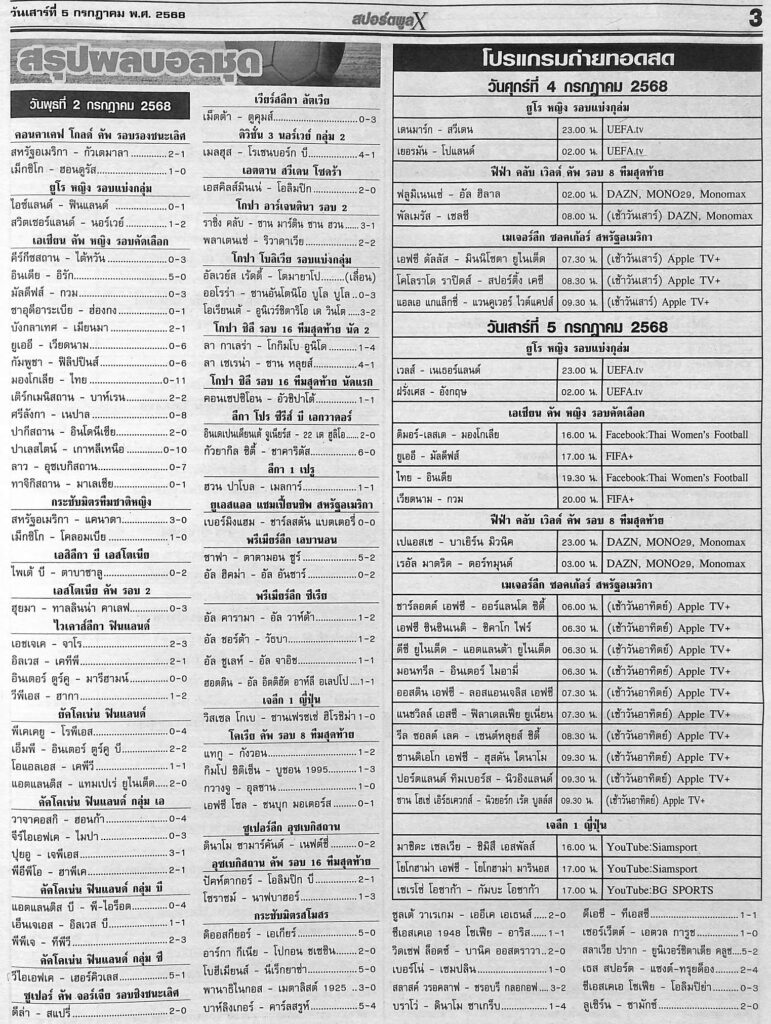 วันเสาร์ที่ 5 กรกฎาคม พ.ศ. 2568
สปอร์ตพูลX
3
สรุปผลบอลชุด
วันพุธที่ 2 กรกฎาคม 2568
คอนคาเคฟ โกลด์ คัพ รอบรองชนะเลิศ
สหรัฐอเมริกา - กัวเตมาลา 2-1
เม็กซิโก - ฮอนดูรัส 1-0
ยูโร หญิง รอบแบ่งกลุ่ม
ไอซ์แลนด์ - ฟินแลนด์ 0-1
สวิตเซอร์แลนด์ - นอร์เวย์ 1-2
เอเชียน คัพ หญิง รอบคัดเลือก
คีร์กีซสถาน - ไต้หวัน 0-3
อินเดีย - อิรัก 5-0
มัลดีฟส์ - กวม 0-3
ซาอุดีอาระเบีย - ฮ่องกง 0-1
บังกลาเทศ - เมียนมา 2-1
ยูเออี - เวียดนาม 0-6
กัมพูชา - ฟิลิปปินส์ 0-6
มองโกเลีย - ไทย 0-11
เติร์กเมนิสถาน - บาห์เรน 2-2
ศรีลังกา - เนปาล 0-8
ปากีสถาน - อินโดนีเซีย 2-0
ปาเลสไตน์ - เกาหลีเหนือ 0-10
ลาว - อุซเบกิสถาน 0-7
ทาจิกิสถาน - มาเลเซีย 0-1
กระชับมิตรทีมชาติหญิง
สหรัฐอเมริกา - แคนาดา 3-0
เม็กซิโก - โคลอมเบีย 1-0
เอสิลีกา บี เอสโตเนีย
ไพเด้ บี - ตาบาซาลู 0-2
เอสโตเนีย คัพ รอบ 2
ฮุยมา - ทาลลินน่า คาเลฟ 0-3
ไวเคาส์ลีกา ฟินแลนด์
เอชเจเค - จาโร 2-3
อิลเวส - เคทีพี 2-1
อินเตอร์ ตูร์คู - มารีฮามน์ 0-0
วีพีเอส - ฮากา 1-2
ยัคโคเน่น ฟินแลนด์
พีเคเคยู - โรพีเอส 0-4
เอ็มพี - อินเตอร์ ตูร์คู บี 2-2
โอแอลเอส - เคพีวี 1-1
แอตแลนติส - แทมเปเร่ ยูไนเต็ด 2-0
คัคโคเน่น ฟินแลนด์ กลุ่ม เอ
วาจาคอสกิ - ฮอนก้า 0-4
จีร์ไอเอฟเค - ไมปา 0-3
ปุยอู - เจพีเอส 3-1
พีอีพีโอ - ฮาพีเค 2-1
คัคโคเน่น ฟินแลนด์ กลุ่ม บี
แอตแลนติส บี - พี-ไอร็อต 0-4
เอ็นเจเอส - อิลเวส บี 1-1
พีพีเจ - ทีพีวี 2-3
คัคโคเน่น ฟินแลนด์ กลุ่ม ซี
วีไอเอฟเค - เฮอร์คิวเลส 5-1
ซูเปอร์ คัพ จอร์เจีย รอบชิงชนะเลิศ
ดีล่า - สแปรี่ 2-0
เวียร์สลีกา ลัตเวีย
เม็ตต้า - ตูคุมส์ 0-3
ดิวิชั่น 3 นอร์เวย์ กลุ่ม 2
เมลฮุส - โรเซนบอร์ก บี 4-1
เอตตาน สวีเดน โซดร้า
เอสคิลส์มินเน่ - โอลิมปิก 2-0
โกปา อาร์เจนตินา รอบ 2
ราซิ่ง คลับ - ซาน มาร์ติน ซาน ฮวน 3-1
พลาเตนเซ่ - ริวาดาเวีย 2-2
โกปา โบลิเวีย รอบแบ่งกลุ่ม
อัลเวย์ส เร้ดดี้ - โตมายาโป (เลื่อน)
ออโรร่า - ซานอันโตนิโอ บูโล บูโล 0-3
โอเรียนเต้ - อูนิเวร์ซิตาริโอ เด วินโต 3-2
โกปา ชิลี รอบ 16 ทีมสุดท้าย นัด 2
ลา กาเลร่า - โกกิมโบ อูนิโด 1-4
ลา เซเรน่า - ซาน หลุยส์ 4-1
โกปา ชิลี รอบ 16 ทีมสุดท้าย นัดแรก
คอนเซปซิโอน - อัวชิปาโต้ 1-1
ลีกา โปร ซีรีส์ บี เอกวาดอร์
อินเดเปนเดียนเต้ จูเนียร์ส - 22 เด ฮูลิโอ 2-0
กัวยากิล ซิตี้ - ชาคาริตัส 6-0
ลีกา 1 เปรู
ฮวน ปาโบล - เมลการ์ 1-1
ยูเอสแอล แชมเปี้ยนชิพ สหรัฐอเมริกา
เบอร์มิงแฮม - ชาร์ลสตัน แบตเตอรี่ 0-0
พรีเมียร์ลีก เลบานอน
ซาฟา - ตาดามอน ซูร์ 5-2
อัล ฮิคม่า - อัล อันซาร์ 0-2
พรีเมียร์ลีก ซีเรีย
อัล คารามา - อัล วาห์ด้า 1-2
อัล ชอร์ต้า - วัธบา 1-2
อัล ชูเลห์ - อัล จาอิช 1-1
ฮอตติน - อัล อิตติฮัด อาห์ลี อเลปโป 1-1
เจลีก 1 ญี่ปุ่น
วิสเซล โกเบ - ซานเฟรซเซ่ ฮิโรชิม่า 1-0
โคเรีย คัพ รอบ 8 ทีมสุดท้าย
แทกู - กังวอน 1-2
กิมโป ซิติเซ็น - บูชอน 1995 1-3
กวางจู - อุลซาน 1-0
เอฟซี โซล - ชนบุก มอเตอร์ส 0-1
ซูเปอร์ลีก อุซเบกิสถาน
ดินาโม ซามาร์คันด์ - เนฟต์ชี่ 0-2
อุซเบกิสถาน คัพ รอบ 16 ทีมสุดท้าย
ปัคห์ตากอร์ - โอลิมปิก บี 2-1
โชราซม์ - นาฟบาฮอร์ 1-3
กระชับมิตรสโมสร
ดิออสกียอร์ - เอเกียร์ 5-0
อาร์กา กีเนีย - โปกอน ชเซซิน 2-0
โบฮีเมียนส์ - นีเร็กยาซ่า 5-0
พานาธิไนกอส - เมตาลิสต์ 1925 3-0
บาห์ลิงเกอร์ - คาร์ลสรูห์ 5-4
โปรแกรมถ่ายทอดสด
วันศุกร์ที่ 4 กรกฎาคม 2568
ยูโร หญิง รอบแบ่งกลุ่ม
เดนมาร์ก - สวีเดน 23.00 น. UEFA.tv
เยอรมัน - โปแลนด์ 02.00 น. UEFA.tv
ฟีฟ่า คลับ เวิลด์ คัพ รอบ 8 ทีมสุดท้าย
ฟลูมิเนนเซ่ - อัล ฮิลาล 02.00 น. DAZN, MONO29, Monomax
พัลเมรัส - เชลซี 08.00 น. (เช้าวันเสาร์) DAZN, Monomax
เมเจอร์ลีก ซอคเก้อร์ สหรัฐอเมริกา
เอฟซี ดัลลัส - มินนิโซตา ยูไนเต็ด 07.30 น. (เช้าวันเสาร์) Apple TV+
โคโลราโด ราปิดส์ - สปอร์ติ้ง เคซี 08.30 น. (เช้าวันเสาร์) Apple TV+
แอลเอ แกแล็กซี่ - แวนคูเวอร์ ไวต์แคปส์ 09.30 น. (เช้าวันเสาร์) Apple TV+
วันเสาร์ที่ 5 กรกฎาคม 2568
ยูโร หญิง รอบแบ่งกลุ่ม
เวลส์ - เนเธอร์แลนด์ 23.00 น. UEFA.tv
ฝรั่งเศส - อังกฤษ 02.00 น. UEFA.tv
เอเชียน คัพ หญิง รอบคัดเลือก
ติมอร์-เลสเต - มองโกเลีย 16.00 น. Facebook:Thai Women's Football
ยูเออี - มัลดีฟส์ 17.00 น. FIFA+
ไทย - อินเดีย 19.30 น. Facebook:Thai Women's Football
เวียดนาม - กวม 20.00 น. FIFA+
ฟีฟ่า คลับ เวิลด์ คัพ รอบ 8 ทีมสุดท้าย
เปแอสเช - บาเยิร์น มิวนิค 23.00 น. DAZN, MONO29, Monomax
เรอัล มาดริด - ดอร์ทมุนด์ 03.00 น. DAZN, MONO29, Monomax
เมเจอร์ลีก ซอคเก้อร์ สหรัฐอเมริกา
ชาร์ลอตต์ เอฟซี - ออร์แลนโด ซิตี้ 06.00 น. (เช้าวันอาทิตย์) Apple TV+
เอฟซี ซินซินเนติ - ชิคาโก ไฟร์ 06.30 น. (เช้าวันอาทิตย์) Apple TV+
ดีซี ยูไนเต็ด - แอตแลนต้า ยูไนเต็ด 06.30 น. (เช้าวันอาทิตย์) Apple TV+
มอนทรีล - อินเตอร์ ไมอามี่ 06.30 น. (เช้าวันอาทิตย์) Apple TV+
ออสติน เอฟซี - ลอสแอนเจลิส เอฟซี 07.30 น. (เช้าวันอาทิตย์) Apple TV+
แนชวิลล์ เอสซี - ฟิลาเดลเฟีย ยูเนี่ยน 07.30 น. (เช้าวันอาทิตย์) Apple TV+
รีล ซอลต์ เลค - เซนต์หลุยส์ ซิตี้ 08.30 น. (เช้าวันอาทิตย์) Apple TV+
ซานดิเอโก เอฟซี - ฮุสตัน ไดนาโม 09.30 น. (เช้าวันอาทิตย์) Apple TV+
ปอร์ตแลนด์ ทิมเบอร์ส - นิวอิงแลนด์ 09.30 น. (เช้าวันอาทิตย์) Apple TV+
ซาน โฮเซ่ เอิร์ธเควกส์ - นิวยอร์ก เร้ด บูลล์ส 09.30 น. (เช้าวันอาทิตย์) Apple TV+
เจลีก 1 ญี่ปุ่น
มาชิดะ เซลเวีย - ชิมิสึ เอสพัลส์ 16.00 น. YouTube:Siamsport
โยโกฮาม่า เอฟซี - โยโกฮาม่า มารินอส 17.00 น. YouTube:Siamsport
เซเรโซ่ โอซาก้า - กัมบะ โอซาก้า 17.00 น. YouTube:BG SPORTS
ซูลเต้ วาเรเกม - เออีเค เอเธนส์ 2-0
ซีเอสเคเอ 1948 โซเฟีย - อาริส 1-1
วิดเซฟ ล็อดซ์ - บานิค ออสตราวา 2-0
เบอร์โน่ - เซมปลิน 1-0
สลาสค์ วรอคลาฟ - ชรอบรี กลอกอฟ 3-2
บราโว่ - ดินาโม ซาเกร็บ 1-4
ดีเอซี - ทีเอสซี 1-1
เซอร์เว็ตต์ - เอตวล การูช 1-0
สลาเวีย ปราก - ยูนิเวอร์ซิตาเตีย คลูช 5-2
เธส สปอร์ต - แซงต์-ทรุยด็อง 2-4
ซีเอสเคเอ โซเฟีย - โอลิมปิย่า 0-3
ลูเซิร์น - ซามักซ์ 2-0